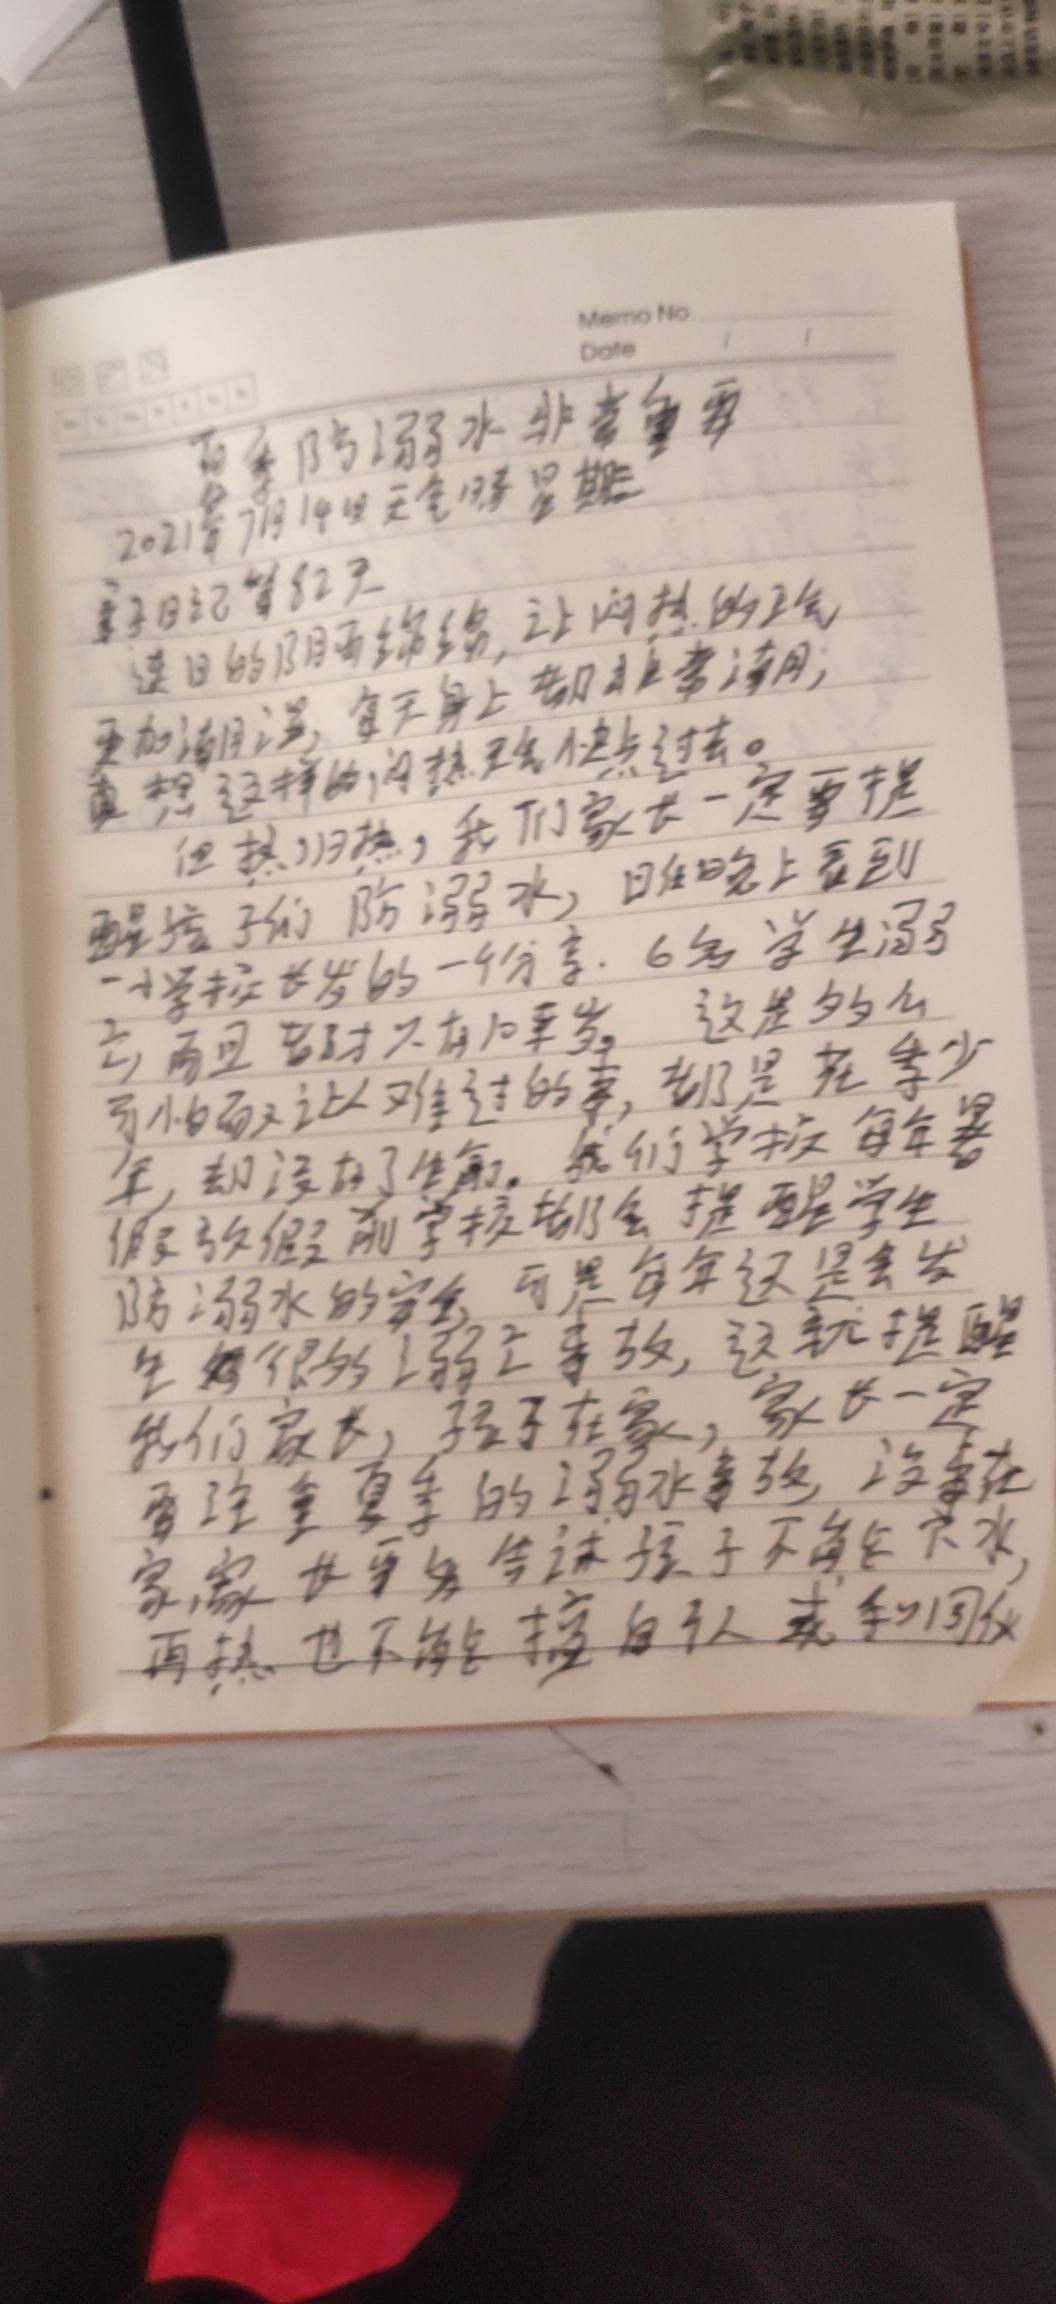 Memo No.
Date / /
夏季防溺水非常重要
2021年7月14日天气晴星期三
亲子日记第82天
连日的阴雨绵绵,让闷热的天气
更加潮湿,每天身上都非常潮,
真想这样的闷热天气快点过去。
但热归热,我们家长一定要提
醒孩子们防溺水,昨晚上看到
一小学校长发的一个分享.6名学生溺
亡,而且都才只有10来岁。这是多么
可怕而又让人难过的事,都是在青少
年,却没有了生命。我们学校每年暑
假放假前学校都会提醒学生
防溺水的安全,可是每年还是会发
生很多溺亡事故,这就提醒
我们家长,孩子在家,家长一定
要注重夏季的溺水事故,没事在
家,家长要多告诉孩子不能下水,
再热也不能擅自一个人或和同伙